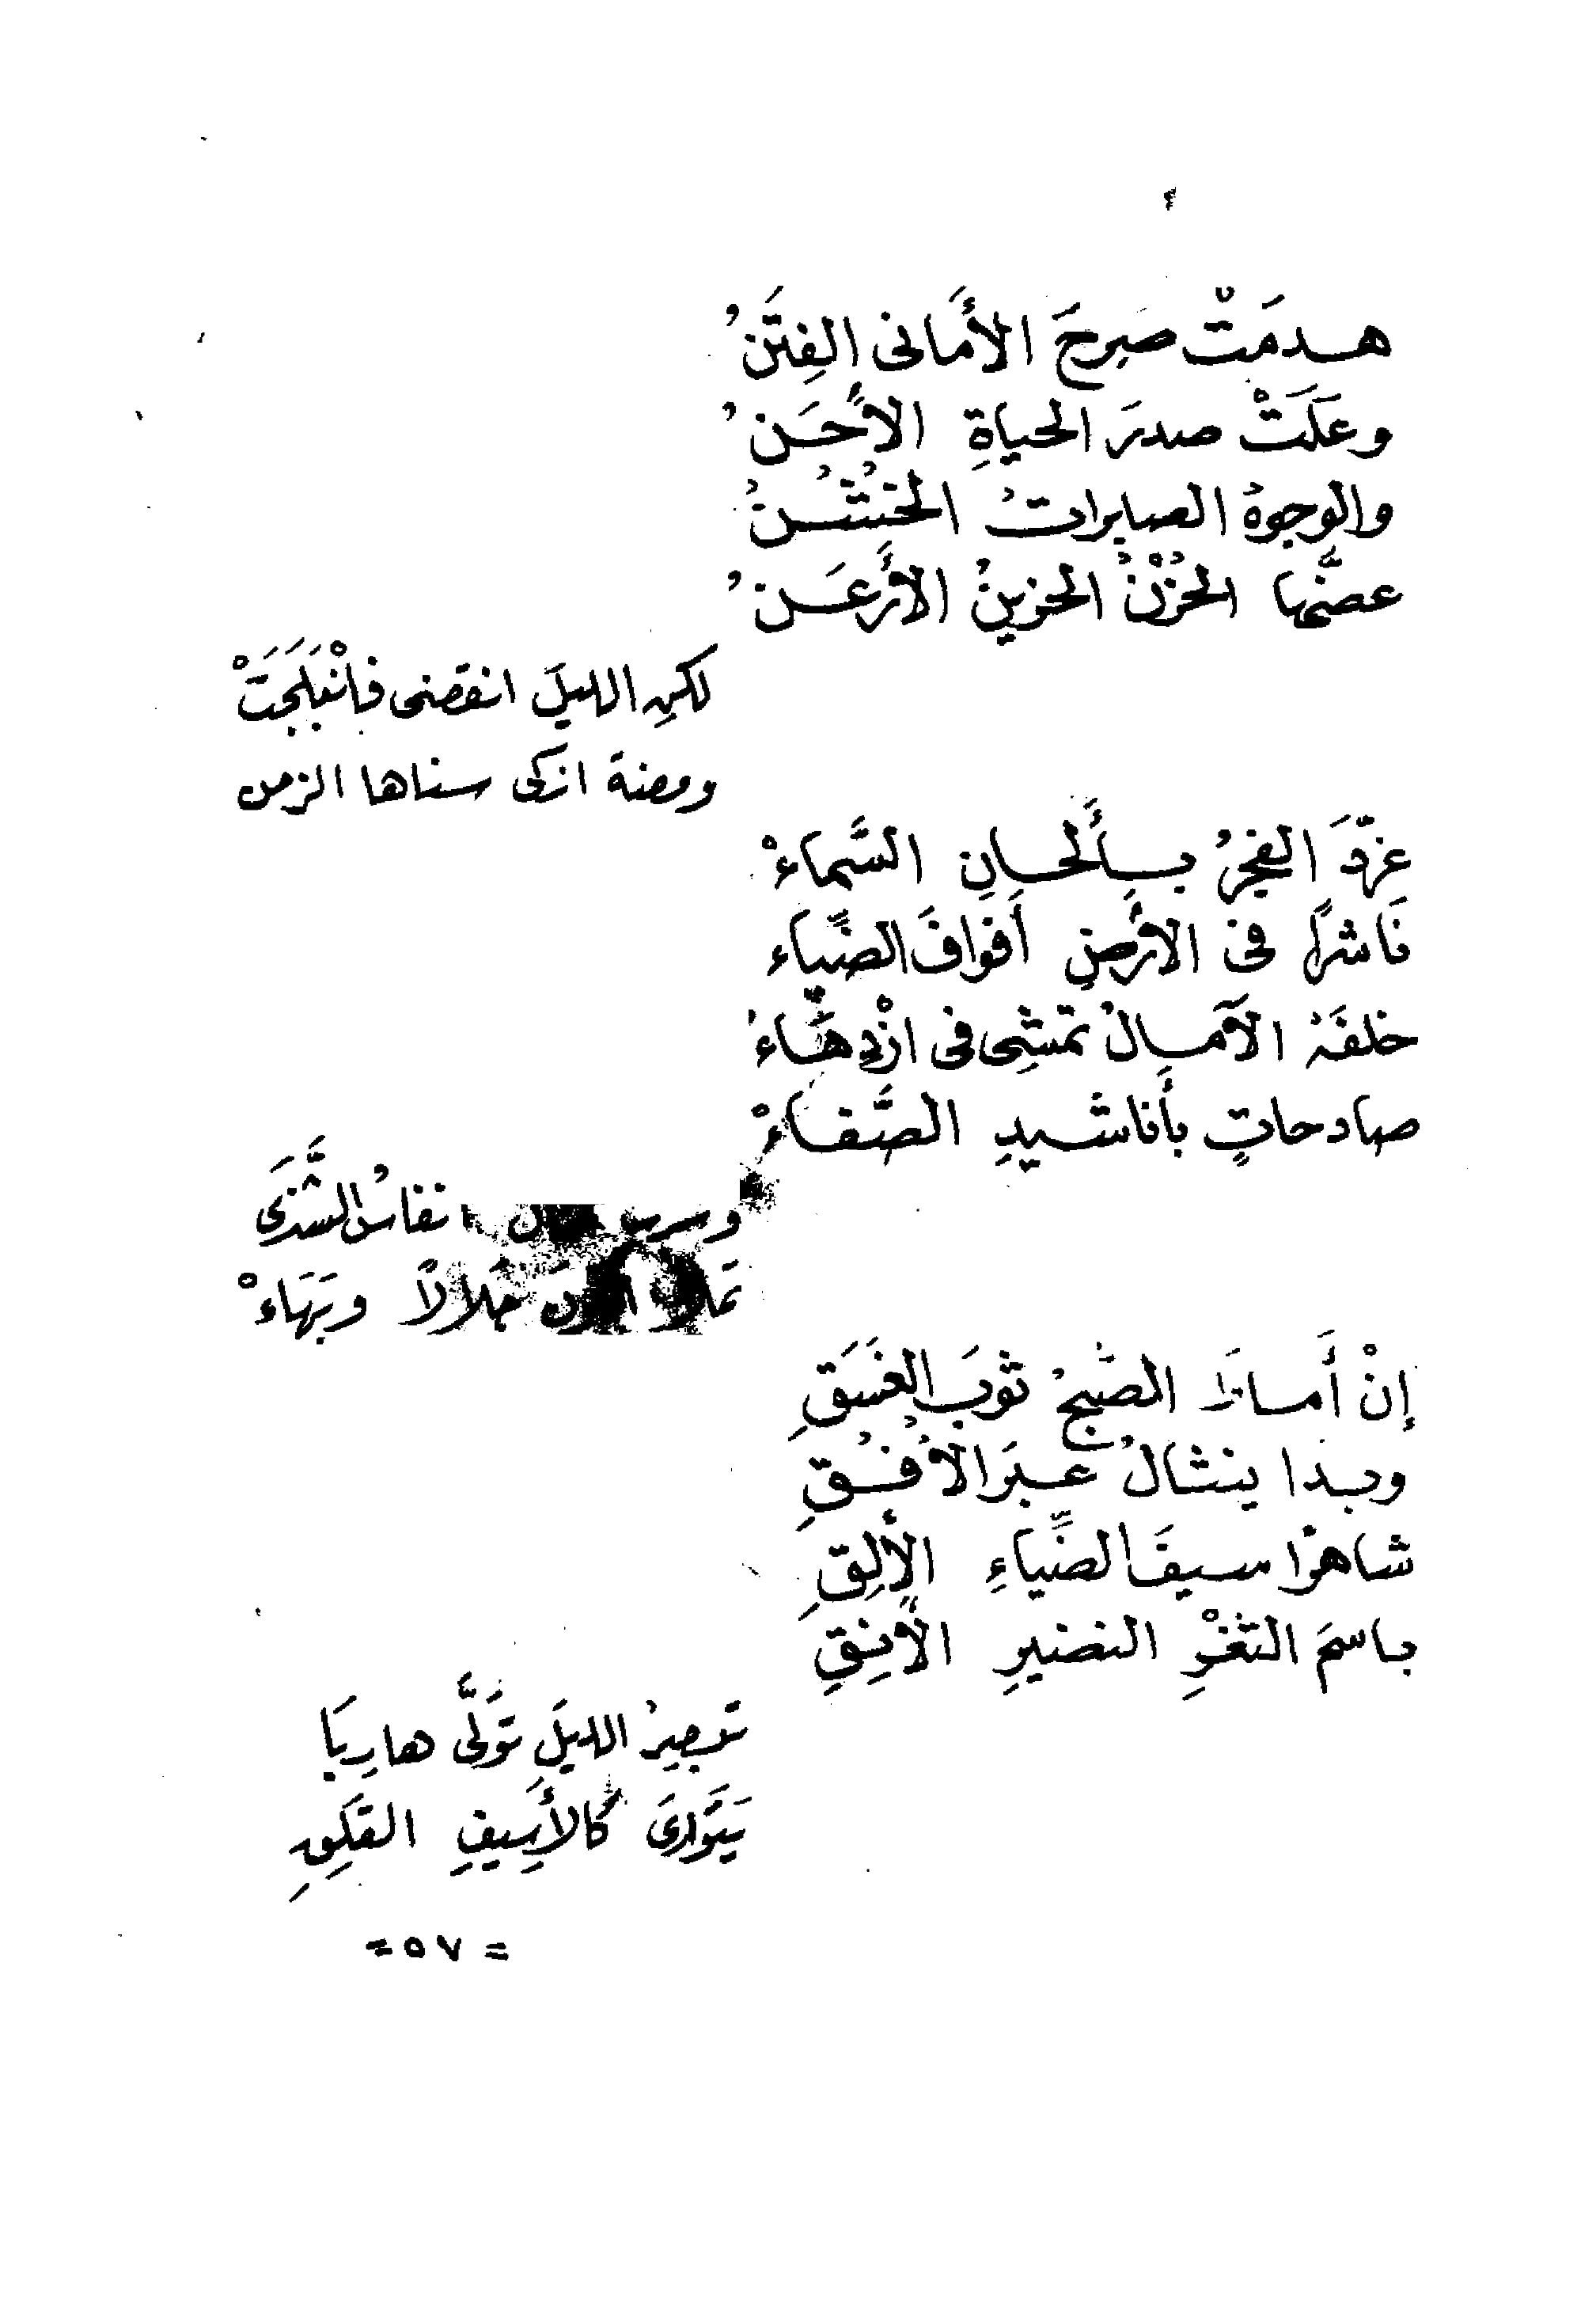 هدمَتْ صرحَ الأَمانى الفِتَنُ
وعَلَتْ صدرَ الحياةِ الأَحَنُ
والوجوهُ الصابراتُ الخُشُنُ
عضَّها الحُزْنُ الحزينُ الأَرعَنُ
لكنِ الليلَ انقضى فانْبَلَجَتْ
ومضة ازكى سناها الزمن
غرّدَ الفجرُ بأَلحانِ السَّماءْ
نَاشرًا فى الأَرضِ أَفوافَ الضِّياء
خلفَهُ الآمالُ تمشِى فى ازْدِهَاءْ
صادحاتٍ بأَناشيدِ الصَّفاءْ
نفاسُ الشَّذَى
جلالًا وبَهَاءْ
إنْ أَماطَ الصُّبحُ ثوبَ الغَسَقِ
وبدا ينثالُ عبرَ الأُفُقِ
شاهرًا سيفَ الضِّياءِ الأَلِقِ
باسمَ الثغْرِ النضيرِ الأَنِقِ
تبصِرُ الليلَ تَولَّى هارِبَا
يَتَوَارَى كَالأَسِيفِ القَلِقِ
= ٥٧ =